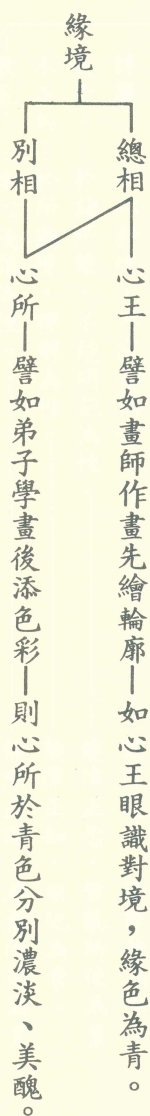 緣境
總相
心王—譬如畫師作畫先繪輪廓—如心王眼識對境，緣色為青。
別相
心所—譬如弟子學畫後添色彩—則心所於青色分別濃淡、美醜。